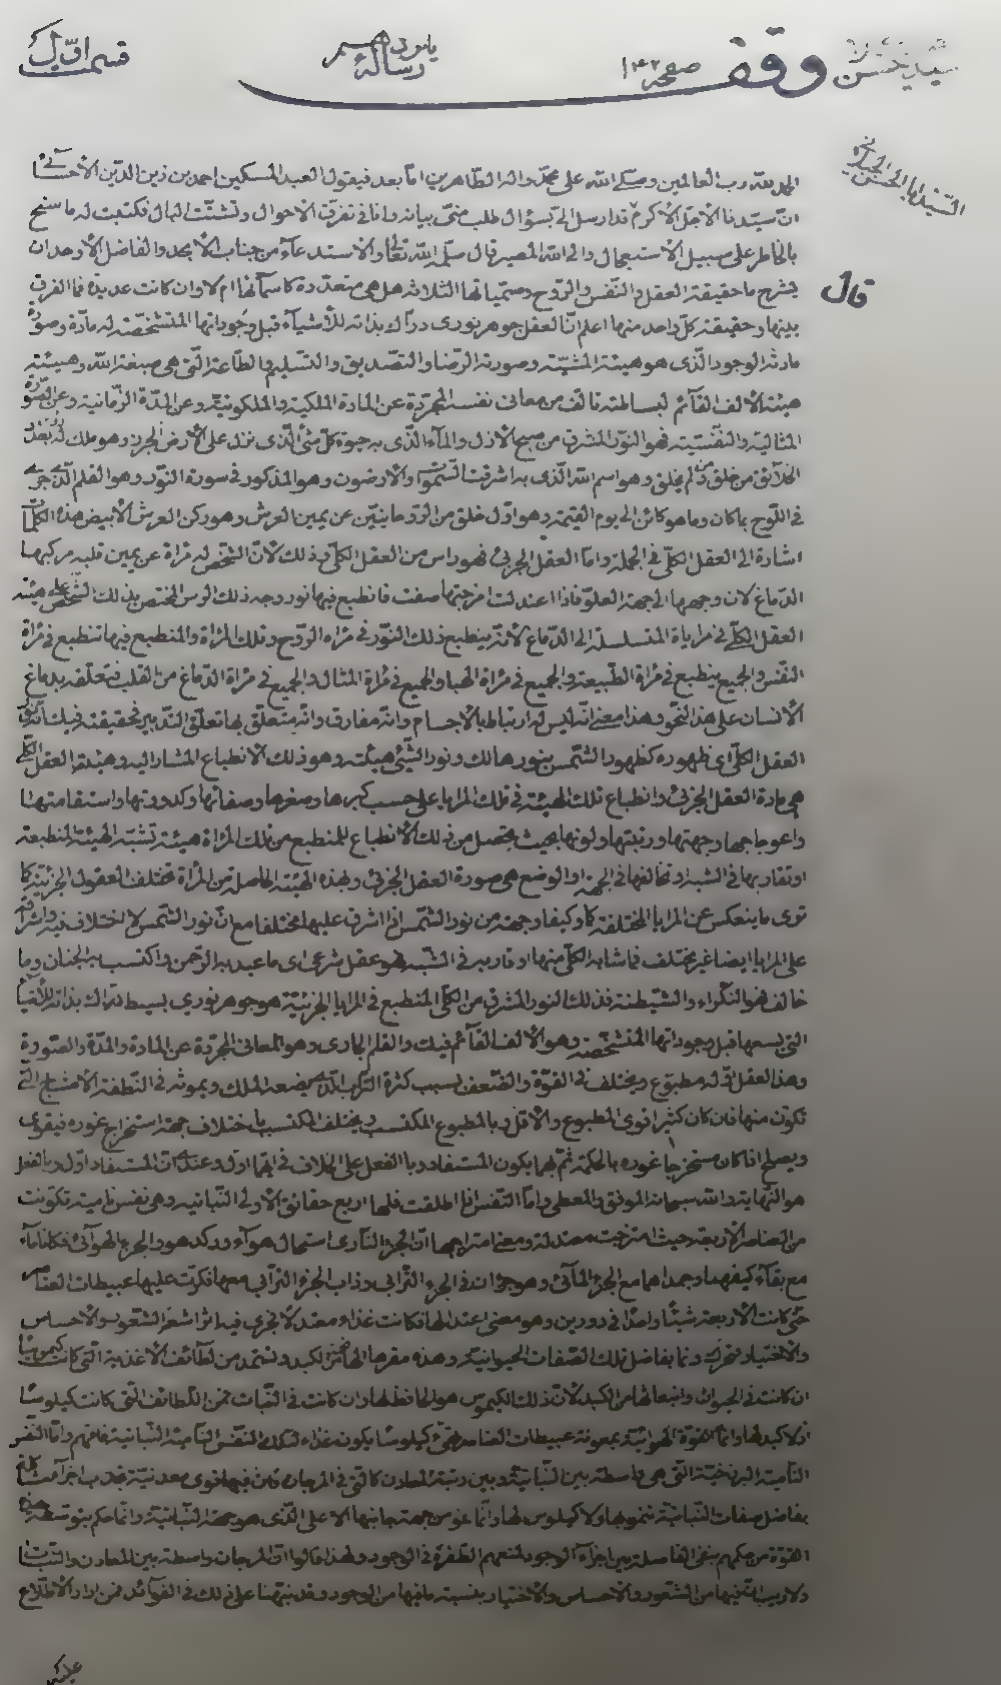 قسمت اوّل
رسالۀ
صفحه ١٤٢
وقف
سيد حسن
السيد ابا الحسن الجيلاني
الحمد لله رب العالمين وصلى الله على محمد واله الطاهرين اما بعد فيقول العبد المسكين احمد بن زين الدين الأحسائى
ان سيدنا الأجل الأكرم قد ارسل الى بسؤال طلب منى بيانه وانا فى تفرق الاحوال وتشتت البال فكتبت له ما سنح
بالخاطر على سبيل الاستعجال والى الله المصير قال سلمه الله تعالى والاستدعاء من جناب الأمجد والفاضل الأوحد ان
قال
يشرح ما حقيقة العقل والنفس والروح ومسمياتها الثلاثة هل هى متعددة كاسمائها ام لا وان كانت عديدة فما الفرق
بينها وحقيقة كل واحد منها اعلم ان العقل جوهر نورى دراك بذاته للأشياء قبل وجوداتها المتشخصة له مادة وصورة
مادته الوجود الذى هو هيئة المشية وصورته الرضا والتصديق والتسليم والطاعة التى هى صبغة الله وهيئته
هيئة الألف القائم لبساطته تالف من معانى نفسه المجردة عن المادة الملكية والملكوتية وعن المدة الزمانية وعن الصورة
المثالية والنفسية فهو النور المشرق من صبح الازل والماء الذى به حيوة كل شئ الذى نزل على الأرض الجرز وهو ملك له رؤس بعدد
الخلائق من خلق ومن لم يخلق وهو اسم الله الذى به اشرقت السموات والارضون وهو المذكور فى سورة النور وهو القلم الذى جرى
فى اللوح بما كان وما هو كائن الى يوم القيمة وهو اول خلق من الروحانيين عن يمين العرش وهو ركن العرش الأبيض هذه الكلمات
اشارة الى العقل الكلى فى الجملة واما العقل الجزئى فهو راس من العقل الكلى وذلك لان الشخص له مرآة عن يمين قلبه مركبها
الدماغ لان وجهها الى جهة العلو فاذا اعتدلت امزجتها صفت فانطبع فيها نور وجه ذلك الرأس المختص بذلك الشخص على هيئة
العقل الكلى فى مراياه المتسلسلة الى الدماغ لأنه ينطبع ذلك النور فى مرآة الروح وتلك المرآة والمنطبع فيها تنطبع فى مرآة
النفس والجميع ينطبع فى مرآة الطبيعة والجميع فى مرآة الهباء والجميع فى مرآة المثال والجميع فى مرآة الدماغ من القلب فتعلقه بدماغ
الأنسان على هذا النحو وهذا معنى انه ليس له ارتباط بالأجسام وانه مفارق وانه متعلق بها تعلق التدبير فحقيقته فيك
العقل الكلى اى ظهوره كظهور الشمس بنورها لك ونور الشئ هيئته وهو ذلك الانطباع المشار اليه وهيئة العقل الكلى
هى مادة العقل الجزئى وانطباع تلك الهيئة فى تلك المرايا على حسب كبرها وصغرها وصفائها وكدورتها واستقامتها
واعوجاجها وجهتها ورتبتها ولونها بحيث يحصل من ذلك الأنطباع للمنطبع من تلك المرآة هيئة تشبه الهيئة المنطبعة
او تقاربها فى الشبه او تخالفها فى الجهة او الوضع هى صورة العقل الجزئى وبهذه الهيئة الحاصلة من المرآة تختلف العقول الجزئية كما
ترى ما ينعكس عن المرايا المختلفة كما وكيفا وجهة من نور الشمس اذا اشرق عليها مختلفا مع ان نور الشمس لا اختلاف فيه واشراقه
على المرايا ايضا غير مختلف فما شابه الكلى منها او قاربه فى الشبه فهو عقل شرعى اى ما عبد به الرحمن واكتسب به الجنان وما
خالف فهو النكراء والشيطنة فذلك النور المشرق من الكلى المنطبع فى المرايا الجزئية هو جوهر نورى بسيط دراك بذاته للأشياء
التى يسعها قبل وجوداتها المتشخصة وهو الألف القائم فيك والقلم الجارى وهو المعانى المجردة عن المادة والمدة والصورة
وهذا العقل الذى له مطبوع ويختلف فى القوة والضعف بسبب كثرة التركب الذى يضعه الملك ويموثه فى النطفة الامشاج التى
تكون منها فان كان كثيرا قوى المطبوع والا قل وبالمطبوع المكتسب ويختلف المكتسب باختلاف جهة استخراج غوره فيقوى
ويصلح اذا كان مستخرجا غوره بالحكمة ثم بهما يكون المستفاد وبالفعل على الخلاف فى ايهما اول وعندى ان المستفاد اول وبالفعل
هو النهاية والله سبحانه الموفق والمعطى واما النفس اذا اطلقت فلها اربع حقائق الاولى النباتية وهى نفس نامية تكونت
من العناصر الأربعة حيث امتزجت معتدلة ومعنى امتزاجها ان الجزء النارى استحال هواء وركد هو والجزء الهوائى فكانا ماء
مع بقاء كيفهما وجمدا هما مع الجزء المائى وهو جزءان فى الجزء الترابى وذاب الجزء الترابى معها فكرت عليها عبيطات العناصر
حتى كانت الأربعة شيئا واحدا فى دورين وهو معنى اعتدالها فكانت غذاء معتدلا فجرى فيه اثر اشعة الشعور والأحساس
والاختيار فتحرك ونما بفاضل تلك الصفات الحيوانية وهذه مقرها الكبد وتستمد من لطائف الأغذية التى كانت كيموسا
ان كانت فى الحيوان وانبعاثها من الكبد لان ذلك الكيموس هو الحافظ لها وان كانت فى النبات فمن اللطائف التى كانت كيلوسا
اذ لا كبد لها وانما القوة الهوائية بمعونة عبيطات العناصر هيئ كيلوسا يكون غذاء لتلك النفس النامية النباتية فافهم واما النفس
النامية البرزخية التى هى واسطة بين النباتية وبين رتبة المعادن كالتى فى المرجان فان فيها قوى معدنية تجذب اجزاء
بفاضل صفات النباتية تنمو بها ولا كيلوس لها وانما نمو من جهة جانبها الاعلى الذى هو جهة النباتية وانما حكم بتوسط هذه
القوة من حكمهم بنفى الفاصلة بين اجزاء الوجود لمنعهم الطفرة فى الوجود ولهذا قالوا ان المرجان واسطة بين المعادن والنبات
ولا ريب ان فيها من الشعور والاحساس والاختيار بنسبة ما فيها من الوجود وقد نبهنا على ذلك فى الفوائد فمن اراد الاطلاع
عليه